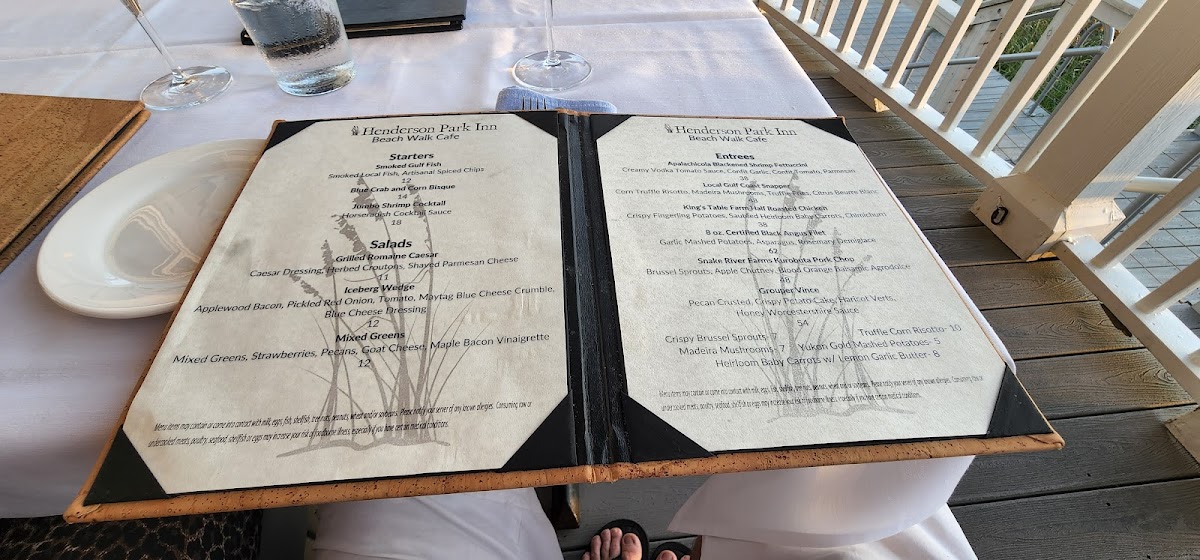 Henderson Park Inn
Beach Walk Cafe
Starters
Smoked Gulf Fish
Smoked Local Fish, Artisanal Spiced Chips
12
Blue Crab and Corn Bisque
14
Jumbo Shrimp Cocktail
Horseradish Cocktail Sauce
18
Salads
Grilled Romaine Caesar
Caesar Dressing, Herbed Croutons, Shaved Parmesan Cheese
11
Iceberg Wedge
Applewood Bacon, Pickled Red Onion, Tomato, Maytag Blue Cheese Crumble,
Blue Cheese Dressing
12
Mixed Greens
Mixed Greens, Strawberries, Pecans, Goat Cheese, Maple Bacon Vinaigrette
12
Menu items may contain or come into contact with milk, eggs, fish, shellfish, tree nuts, peanuts, wheat and/or soybeans. Please notify your server of any known allergies. Consuming raw or
undercooked meats, poultry, seafood, shellfish or eggs may increase your risk of foodborne illness, especially if you have certain medical conditions.
Henderson Park Inn
Beach Walk Cafe
Entrees
Apalachicola Blackened Shrimp Fettuccini
Creamy Vodka Tomato Sauce, Confit Garlic, Confit Tomato, Parmesan
38
Local Gulf Coast Snapper
Corn Truffle Risotto, Madeira Mushrooms, Truffle Fries, Citrus Beurre Blanc
King's Table Farm Half Roasted Chicken
Crispy Fingerling Potatoes, Sautéed Heirloom Baby Carrots, Chimichurri
38
8 oz. Certified Black Angus Filet
Garlic Mashed Potatoes, Asparagus, Rosemary Demiglace
62
Snake River Farms Kurobuta Pork Chop
Brussel Sprouts, Apple Chutney, Blood Orange Balsamic Agrodolce
48
Grouper Vince
Pecan Crusted, Crispy Potato Cake, Haricot Verts,
Honey Worcestershire Sauce
54
Crispy Brussel Sprouts- 7 Truffle Corn Risotto- 10
Madeira Mushrooms- 7 Yukon Gold Mashed Potatoes- 5
Heirloom Baby Carrots w/ Lemon Garlic Butter- 8
Menu items may contain or come into contact with milk, eggs, fish, shellfish, tree nuts, peanuts, wheat and/or soybeans. Please notify your server of any known allergies. Consuming raw
or undercooked meats, poultry, seafood, shellfish or eggs may increase your risk of foodborne illness, especially if you have certain medical conditions.